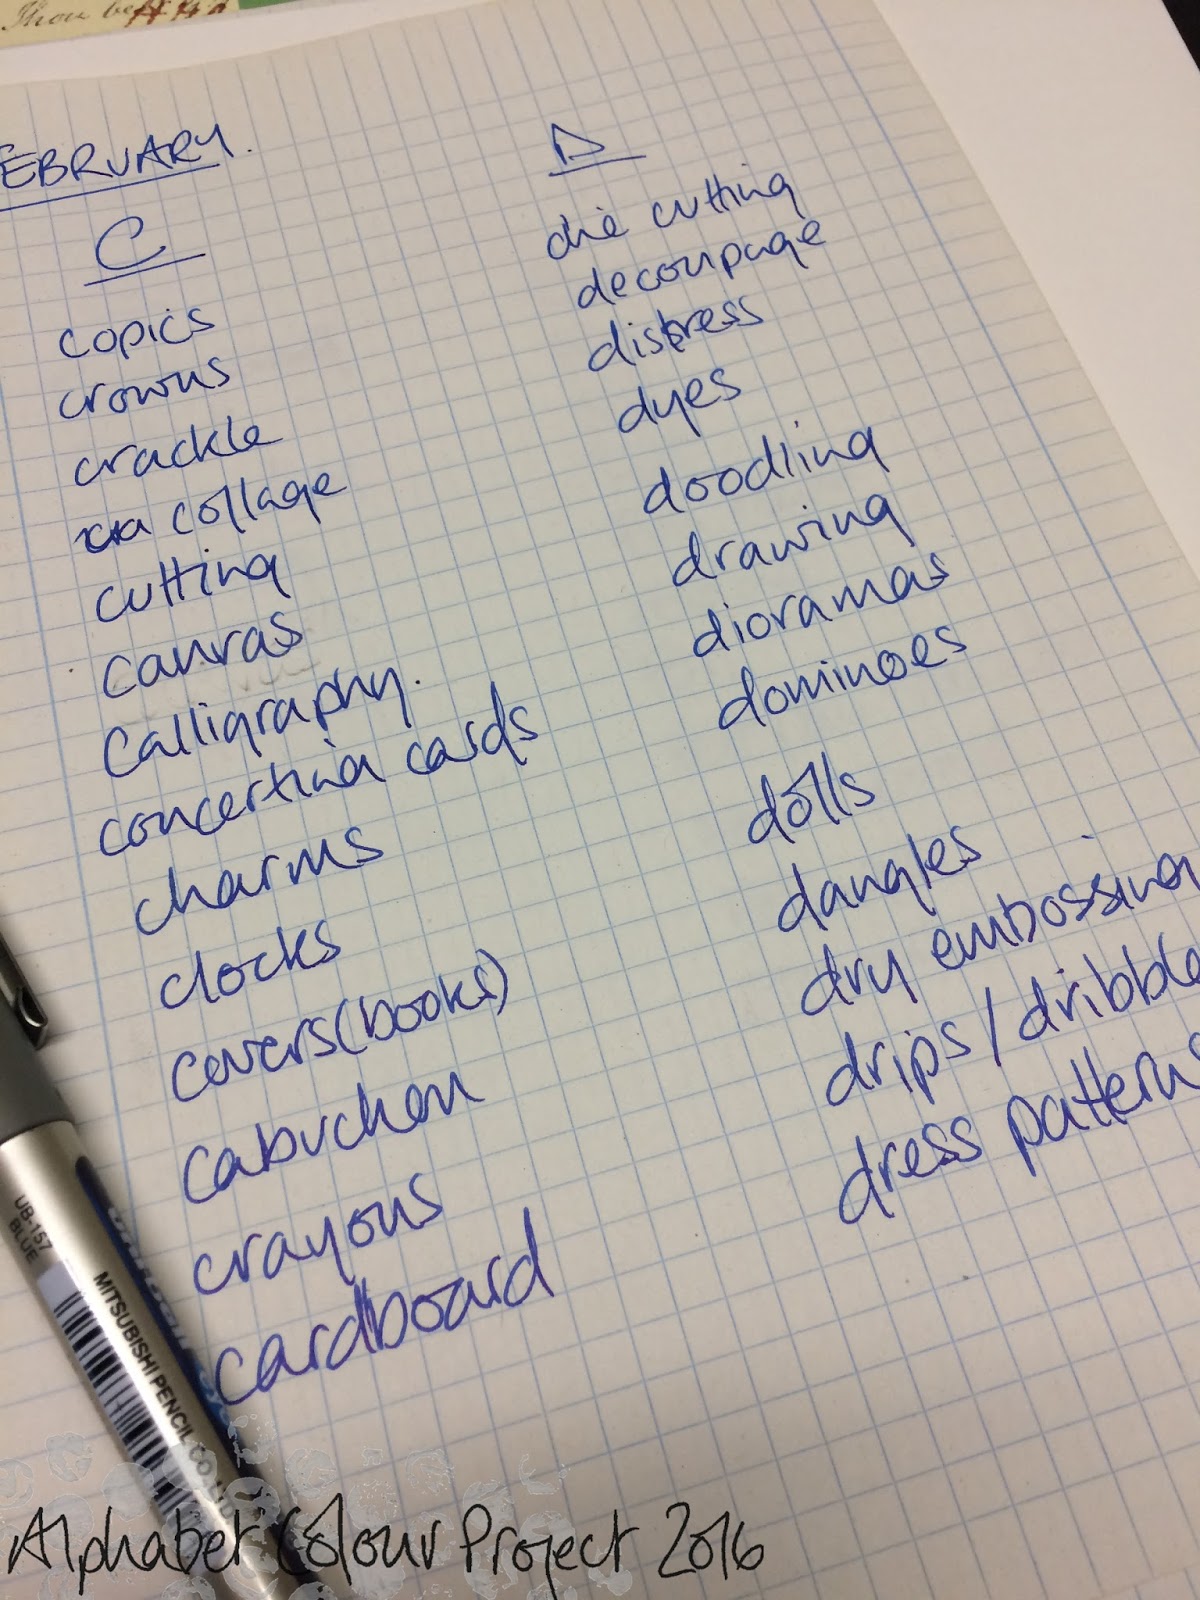 Thou be
FEBRUARY.
C
copics
crowns
crackle
collage
cutting
canvas
calligraphy.
concertina cards
charms
clocks
covers (books)
cabuchon
crayons
cardboard
D
die cutting
decoupage
distress
dyes
doodling
drawing
dioramas
dominoes
dolls
dangles
dry embossing
drips / dribble
dress patterns
UB-157
BLUE
MITSUBISHI PENCIL CO.
Alphabet Colour Project 2016